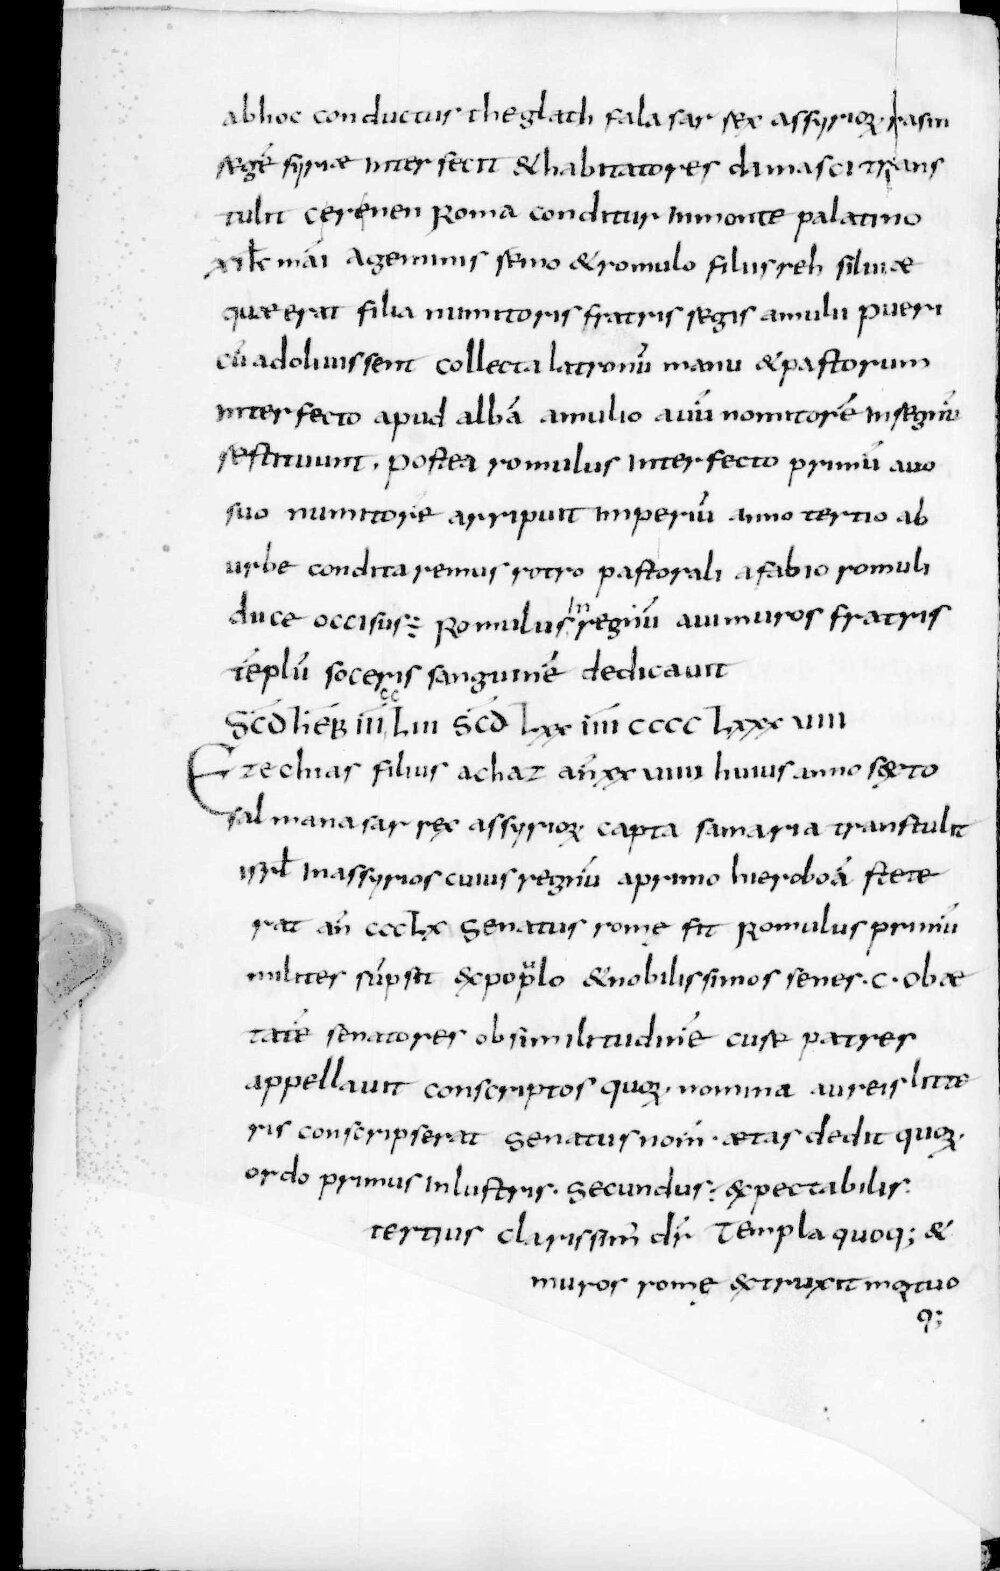 abhoc conductus theglath falasar rex assyrioꝝ· rasin
regē syriæ interfecit & habitatores damasci trans
tulit cerenen Roma conditur inmonte palatino
xi kł mai Ageminis remo & romulo filiis reh siluiæ
quæ erat filia numitoris fratris regis amulii pueri
cū adoliuissent collecta latronū manu & pastorum
interfecto apud albā amulio auū nomitorē inregnū
restituunt. postea romulus interfecto primū auo
suo numitore arripuit imperiū anno tertio ab
urbe condita remus rotro pastorali afabio romuli
duce occisus: Romulus inregnū auimuros fratris
tēplū soceris sanguinē dedicauit
Sc̄d heƀ iiī cc Liii Sc̄d Lxx iiiī cccc Lxxx uiii
Ezechias filius achaz an̄ xx uiiii huius anno sexto
salmanasar rex assyrioꝝ· capta samaria transtulit
isrł inassyrios cuius regnū aprimo hieroboā stete
rat an̄ cccLx Senatus romę fit Romulus primū
milites sūpsit expoplo & nobilissimos senes· c· obæ
tatē senatores obsimilitudinē curæ patres
appellauit conscriptos quoꝝ· nomina aureis litte
ris conscripserat Senatus nom̄· ætas dedit quoꝝ·
ordo primus inlustris· Secundus: expectabilis:
tertius clarissim̄ dr̄ Templa quoq; &
muros romę extruxit mortuo
q;